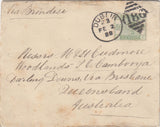 Via Brindisi
DUBLIN
FE 2
88
186
Messrs W & H Cudmore
Darling Downs, via Brisbane
Queensland
Australia